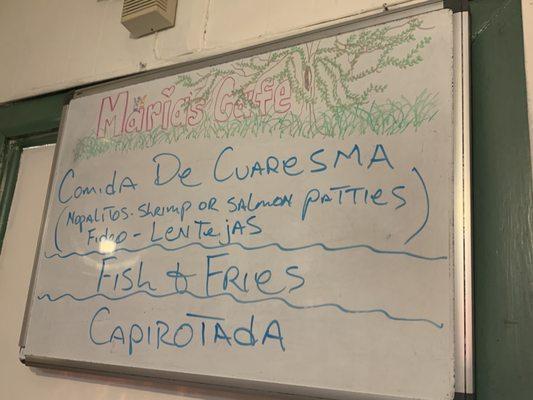 Maria's Cafe
Comida De Cuaresma
(Nopalitos. Shrimp or Salmon patties.
Fideo - Lentejas)
Fish & Fries
Capirotada